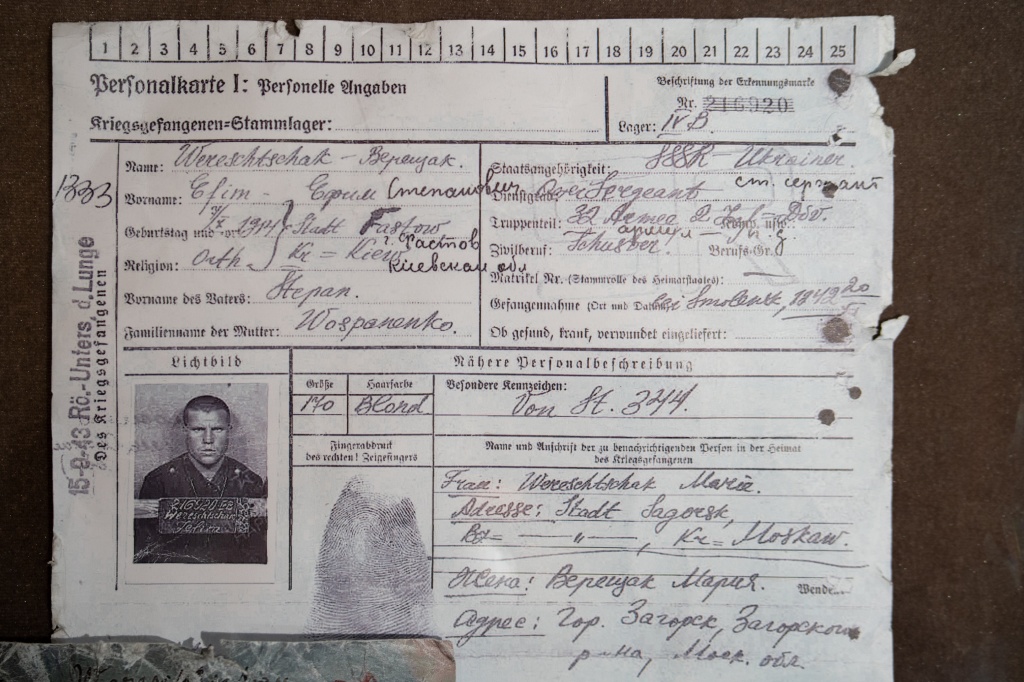 1 2 3 4 5 6 7 8 9 10 11 12 13 14 15 16 17 18 19 20 21 22 23 24 25
Personalkarte I: Personelle Angaben
Beschriftung der Erkennungsmarke
Nr. 216920
Kriegsgefangenen-Stammlager:
Lager: IV B.
Name: Wereschtschak - Верещак.
Staatsangehörigkeit: SSSR - Ukrainer.
1333
Vorname: Efim - Ефим Степанович
Dienstgrad: Ober Sergeant ст. сержант
Geburtstag und -ort: 1914 Stadt Fastow
г. Фастов
Truppenteil: 32 Armee 2 Div. Komp. usw.:
Religion: Orth. Kr = Kiew
Киевская обл
Zivilberuf: Schuster Berufs-Gr.:
Matrikel Nr. (Stammrolle des Heimatstaates):
Vorname des Vaters: Stepan.
Gefangennahme (Ort und Datum): bei Smolensk, 1942 20
Familienname der Mutter: Wospanenko.
Ob gesund, krank, verwundet eingeliefert:
15-9-43 Rö.-Unters. d. Lunge
Des Kriegsgefangenen
Lichtbild
Nähere Personalbeschreibung
Größe Haarfarbe
170 Blond
Besondere Kennzeichen:
Von St. 344.
Fingerabdruck
des rechten! Zeigefingers
Name und Anschrift der zu benachrichtigenden Person in der Heimat
des Kriegsgefangenen
Frau: Wereschtschak Maria.
Adresse: Stadt Sagorsk,
— " —, Kr = Moskau.
Жена: Верещак Мария.
Wenden
Адрес: Гор. Загорск, Загорского
р-на, Моск. обл.